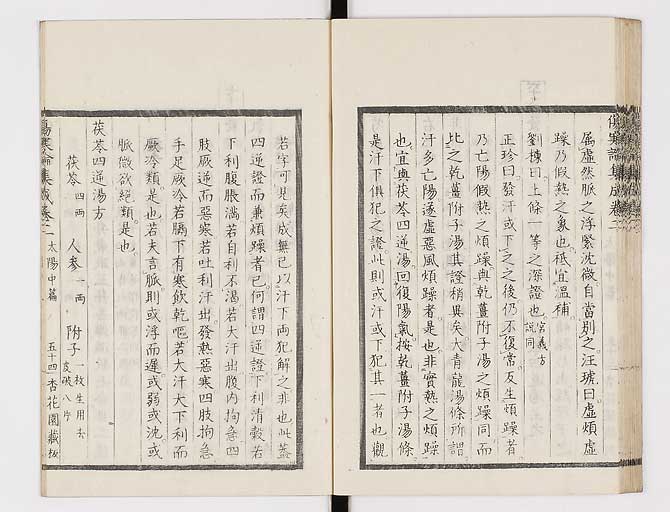 傷寒論集成卷二
屬虛然脈之浮緊沈微自當別之汪琥曰虛煩虛
躁乃假熱之象也秪宜溫補
劉棟曰上條一等之深證也宮義方說同
正珍曰發汗或下之之後仍不復常反生煩躁者
乃亡陽假熱之煩躁與乾薑附子湯之煩躁同
此之乾薑附子湯其證稍異矣大青龍湯條所謂
汗多亡陽遂虛惡風煩躁者是也非實熱之煩躁
也宜與茯苓四逆湯回復陽氣按乾薑附子湯條
是汗下俱犯之證此則或汗或下犯其一者也觀
若字可見矣成無已以汗下兩犯解之非也此蓋
四逆證而兼煩躁者已何謂四逆證下利清穀若
下利腹脹滿若自利不渴若大汗出腹內拘急四
肢厥逆而惡寒若吐利汗出發熱惡寒四肢拘急
手足厥冷若膈下有寒飲乾嘔若大汗大下利而
厥冷類是也若夫言脈則或浮而遲或弱或沈或
脈微欲絕類是也
茯苓四逆湯方
茯苓四兩 人參一兩 附子一枚生用去皮破八片
傷寒論集成卷二 太陽中篇 五十四 杏花園藏板